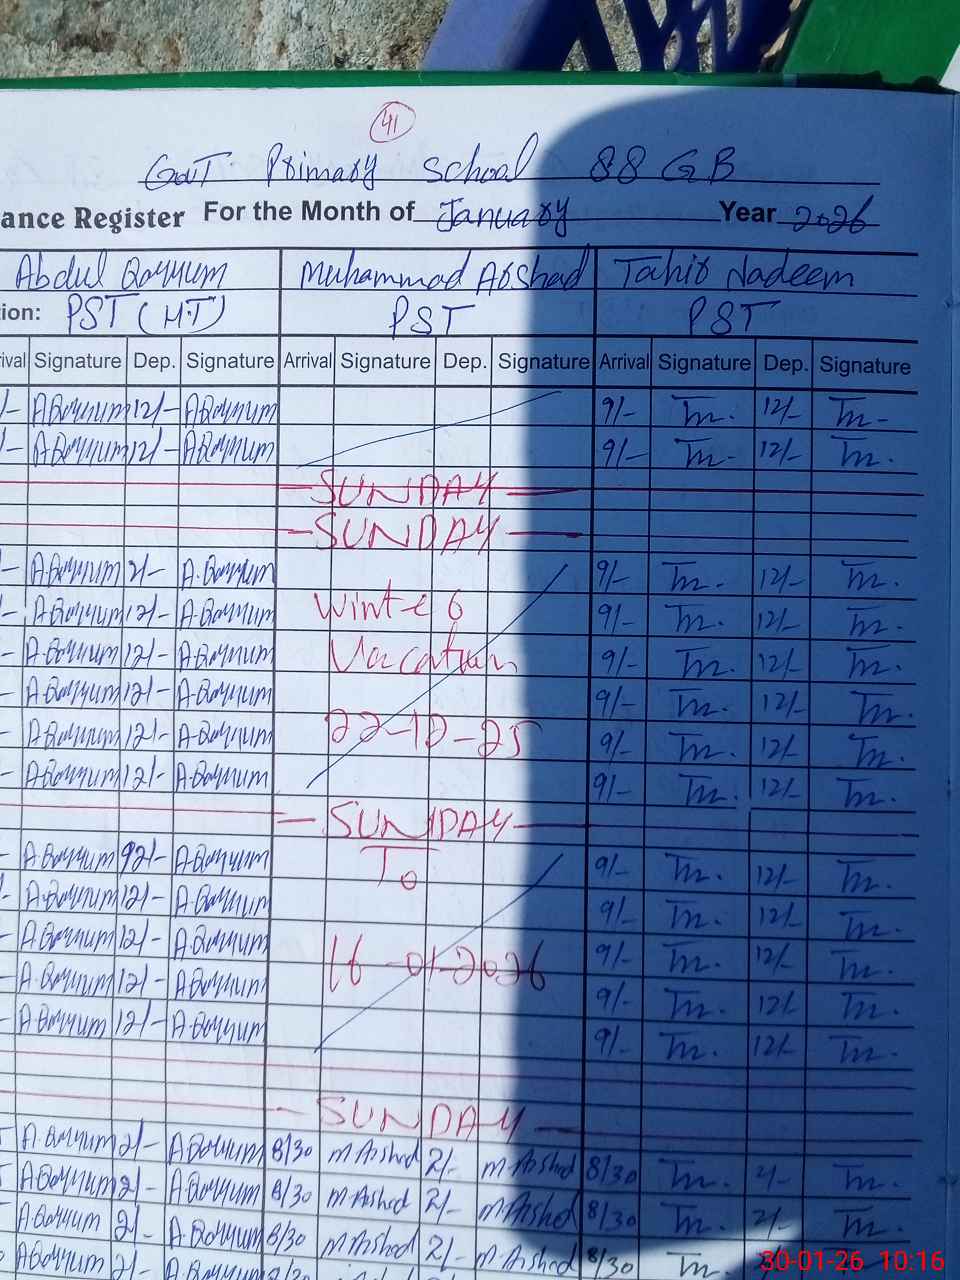 41
Govt Primary School 88 GB
ance Register For the Month of January Year 2026
Abdul Qayyum Muhammad Arshad Tahir Nadeem
ion: PST (H.T) PST PST
ival Signature Dep. Signature Arrival Signature Dep. Signature Arrival Signature Dep. Signature
/- A.Qayyum 12/- A.Qayyum 9/- Tn. 12/- Tn.
/- A.Qayyum 12/- A.Qayyum 9/- Tn. 12/- Tn.
SUNDAY
SUNDAY
/- A.Qayyum 2/- A.Qayyum 9/- Tn. 12/- Tn.
/- A.Qayyum 12/- A.Qayyum Winter 9/- Tn. 12/- Tn.
- A.Qayyum 12/- A.Qayyum Vacation 9/- Tn. 12/- Tn.
- A.Qayyum 12/- A.Qayyum 9/- Tn. 12/- Tn.
A.Qayyum 12/- A.Qayyum 22-12-25 9/- Tn. 12/- Tn.
- A.Qayyum 12/- A.Qayyum 9/- Tn. 12/- Tn.
SUNDAY
- A.Qayyum 12/- A.Qayyum To 9/- Tn. 12/- Tn.
/- A.Qayyum 12/- A.Qayyum 9/- Tn. 12/- Tn.
- A.Qayyum 12/- A.Qayyum 16-01-2026 9/- Tn. 12/- Tn.
- A.Qayyum 12/- A.Qayyum 9/- Tn. 12/- Tn.
- A.Qayyum 12/- A.Qayyum 9/- Tn. 12/- Tn.
SUNDAY
A.Qayyum 2/- A.Qayyum 8/30 M.Arshad 2/- M.Arshad 8/30 Tn. 2/- Tn.
A.Qayyum 2/- A.Qayyum 8/30 M.Arshad 2/- M.Arshad 8/30 Tn. 2/- Tn.
A.Qayyum 2/- A.Qayyum 8/30 M.Arshad 2/- M.Arshad 8/30 Tn.
A.Qayyum 2/- A.Qayyum
30-01-26 10:16